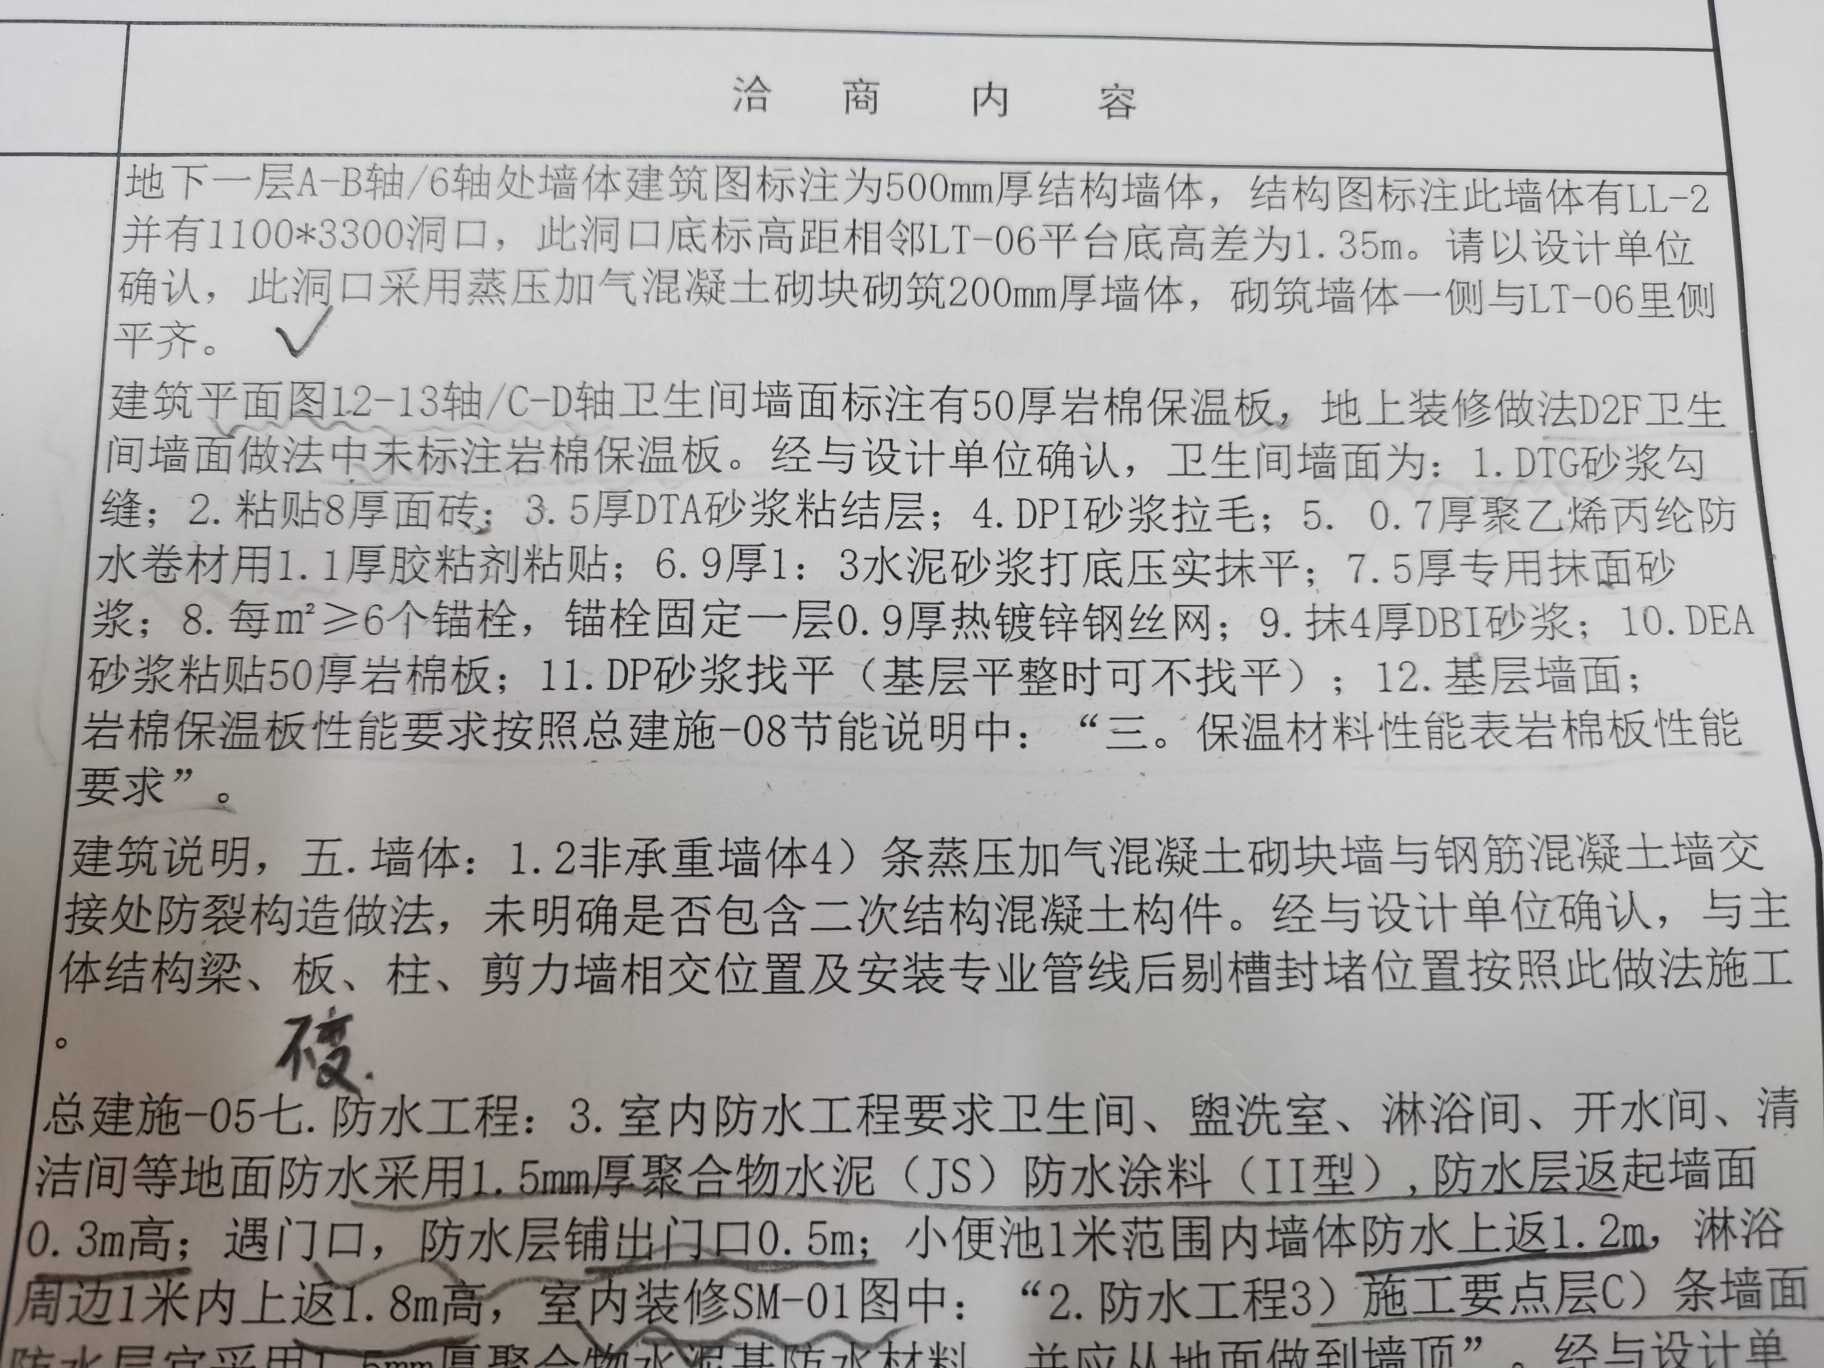 洽 商 内 容
地下一层A-B轴/6轴处墙体建筑图标注为500mm厚结构墙体，结构图标注此墙体有LL-2
并有1100*3300洞口，此洞口底标高距相邻LT-06平台底高差为1.35m。请以设计单位
确认，此洞口采用蒸压加气混凝土砌块砌筑200mm厚墙体，砌筑墙体一侧与LT-06里侧
平齐。
建筑平面图12-13轴/C-D轴卫生间墙面标注有50厚岩棉保温板，地上装修做法D2F卫生
间墙面做法中未标注岩棉保温板。经与设计单位确认，卫生间墙面为：1.DTG砂浆勾
缝；2.粘贴8厚面砖；3.5厚DTA砂浆粘结层；4.DPI砂浆拉毛；5. 0.7厚聚乙烯丙纶防
水卷材用1.1厚胶粘剂粘贴；6.9厚1：3水泥砂浆打底压实抹平；7.5厚专用抹面砂
浆；8.每㎡≥6个锚栓，锚栓固定一层0.9厚热镀锌钢丝网；9.抹4厚DBI砂浆；10.DEA
砂浆粘贴50厚岩棉板；11.DP砂浆找平（基层平整时可不找平）；12.基层墙面；
岩棉保温板性能要求按照总建施-08节能说明中：“三。保温材料性能表岩棉板性能
要求”。
建筑说明，五.墙体：1.2非承重墙体4）条蒸压加气混凝土砌块墙与钢筋混凝土墙交
接处防裂构造做法，未明确是否包含二次结构混凝土构件。经与设计单位确认，与主
体结构梁、板、柱、剪力墙相交位置及安装专业管线后剔槽封堵位置按照此做法施工
。
不变.
总建施-05七.防水工程：3.室内防水工程要求卫生间、盥洗室、淋浴间、开水间、清
洁间等地面防水采用1.5mm厚聚合物水泥（JS）防水涂料（II型）,防水层返起墙面
0.3m高；遇门口，防水层铺出门口0.5m；小便池1米范围内墙体防水上返1.2m，淋浴
周边1米内上返1.8m高，室内装修SM-01图中：“2.防水工程3）施工要点层C）条墙面
防水层宜采用1.5mm厚聚合物水泥基防水材料，并应从地面做到墙顶”。经与设计单